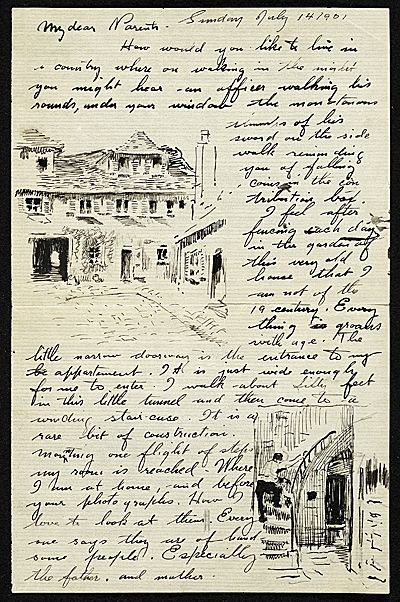 Sunday July 14 1901
My dear Parents.
How would you like to live in
a country where on waking in the night
you might hear an officer walking his
rounds, under your window the monotonous
of his
sword on the side
walk reminding
you of falling
coins in the con
tribution box.
I feel after
fencing each day
in the garden of
this very old
house that I
am not of the
19 century. Every
thing groans
with age. The
little narrow doorway is the entrance to my
appartement. It is just wide enough
for me to enter. I walk about fifty feet
in this little tunnel and then come to a
winding stair-case. It is a
rare bit of construction.
Mounting one flight of steps
my room is reached. Where
I am at home, and before
your photographs. How I
love to look at them. Every
one says they are of
some people. Especially
the father, and mother.